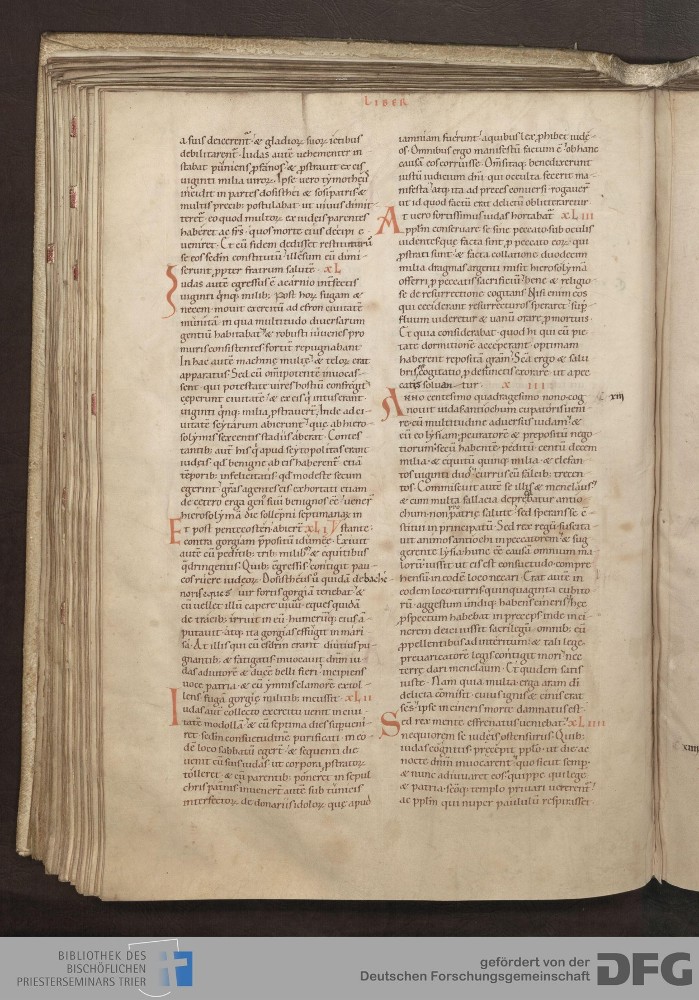 LIBER
a suis deicerent̄ & gladioꝝ suoꝝ ictibus
debilitarent̄. Iudas autē uehementer in
stabat puniens ꝓfanos & ꝓstrauit ex eis
uiginti milia uiroꝝ. Ipse uero tymotheꝰ
incidit in partes dosithei & sosipatris &
multis precib; postulabat ut uiuus dimit
teret̄ eo quod multoꝝ ex iudeis parentes
haberet ac frs̄ quos morte eius decipi e
ueniret. Et cū fidem dedisset restituturū
se eos scdm̄ constitutū illesum eū dimi
serunt ꝓpter fratrum salutē. XL
Iudas autē egressus ē a carnio interfectis
uiginti qnq; milib;. Post hoꝝ fugam &
necem mouit exercitū ad efron ciuitatē
munitā in qua multitudo diuersarum
gentiū habitabat & robusti iuuenes pro
muris consistentes fortit̄ repugnabant
In hac autē machinę multę & teloꝝ erat
apparatus. Sed cū om̄ipotentē inuocas
sent qui potestate uires hostiū confregit
ceperunt ciuitatē & ex eis q intus erant
uiginti qnq; milia ꝓstrauer̄. Inde ad ci
uitatē scytarum abierunt quę ab hiero
solymis sexcentis stadiis aberat. Contes
tantib; autē his q apud scytopolitas erant
iudeis qd benigne ab eis haberent̄ etiā
tēporib; infelicitatis qd modeste secum
egerint gras agentes eis exhortati etiam
de cetero erga genꝰ suū benignos eē uener̄
hierosolymā die sollepni septimanaꝝ in
Et post pentecosten abierī XLI stante.
contra gorgiam p̄positū idumeę. Exiuit
autē cū peditib; trib; milibꝰ & equitibus
q̄dringentis. Quib; cgressis contigit pau
cos ruere iudeoꝝ. Dositheus ū quidā de bache
noris eques uir fortis gorgiā tenebat &
cū uellet illū capere uiuū eques quidā
de tracib; irruit in eū humerūq; eius ā
putauit atq; ita gorgias effugit in mari
sa. At illis qui cū esdrin erant diutius pu
gnantib; & fatigatis inuocauit dnm̄ iu
das adiutorē & ducē belli fieri incipiens
uoce patria & cū ymnis clamorē extol
lens fugā gorgię militib; incussit. XLII
Iudas aut̄ collecto exercitu uenit in ciui
tatē modollā & cū septima dies supueni
ret scdm̄ consuetudinē purificati in eo
dē loco sabbatū egerī & sequenti die
uenit cū suis iudas ut corpora ꝓstratoꝝ
tolleret & cū parentib; poneret in sepul
chris patnis inuenerī autē sub tunicis
interfectoꝝ de donariis idoloꝝ quę apud
iamniam fuerunt a quibus lex ꝓhibet iudę
os. Omnibus ergo manifestū factum ē obhanc
causā eos corruisse. Om̄sitaq; benedixerunt
iustū iudicium dni qui occulta fecerit ma
nifesta atq; ita ad preces conuersi rogauer̄
ut id quod factū erat delictū obliuiscaretur
At uero fortissimus iudas hortabat̄ XLIII
ppl̄m conseruare se sine peccato sub oculis
uidentes quę facta sint ꝓ peccato eoꝝ qui
ꝓstrati sunt & facta collatione duodecim
milia dragmas argenti misit hierosolymā
offerri ꝓ peccatis sacrificiū bene & religio
se de resurrectione cogitans. Nisi enim eos
qui ceciderant resurrecturos speraret sup̄
fluum uideretur & uanū orare ꝓ mortuis.
Et quia considerabat quod hi qui cū pie
tate dormitionē acceperant optimam
haberent repositā gram̄. Sca ergo & salu
bris cogitatio ꝓ defunctis exorare ut a pec
catis soluan tur. X III
Anno centesimo quadragesimo nono cog xiii
nouit iudas antiochum eupatorē ueni
re cū multitudine aduersus iudam &
cū eo lysiam ꝓcuratorē & prepositū nego
tiorum secū habentē peditū centū decem
milia & equitū quinq; milia & elefan
tos uiginti duoꝰ currus cū falcib; trecen
tos. Commiscuit autē se illis & menelaus
& cum multa fallacia deprecabatur antio
chum non ꝓ patrię salute sed sperans se c
stitui in principatū. Sed rex regū suscita
uit animos antiochi in peccatorem & sug
gerente lysia hunc eē causā omnium ma
loꝝ iussit ut eis est consuetudo compre
hensū in eodē loco necari. Erat autē in
eodem loco turris quinquaginta cubito
rū aggestum undiq; habens cineris hęc
ꝓspectum habebat in preceps. Inde in ci
nerem deici iussit sacrilegū omnib; cū
ꝓpellentibus ad interitum & tali lege
preuaricatorē legis contigit mori nec
terrę dari menelaum. Et quidem satis
iuste. Nam quia multa erga aram di
delicta com̄isit cuius ignis & cinis erat
scs ipse in cineris morte damnatus est.
Sed rex mente effrenatus ueniebat XLIIII
nequiorem se iudeis ostensurus. Quib;
iudas cognitis precepit pplo ut die ac
nocte dnm̄ inuocarent quo sicut semp
& nunc adiuuaret eos quippe qui lege
& patria scōq; templo priuari uererent̄
ac ppl̄m qui nuper paululū respirasset
xiiii
BIBLIOTHEK DES
BISCHÖFLICHEN
PRIESTERSEMINARS TRIER
gefördert von der
Deutschen Forschungsgemeinschaft
DFG